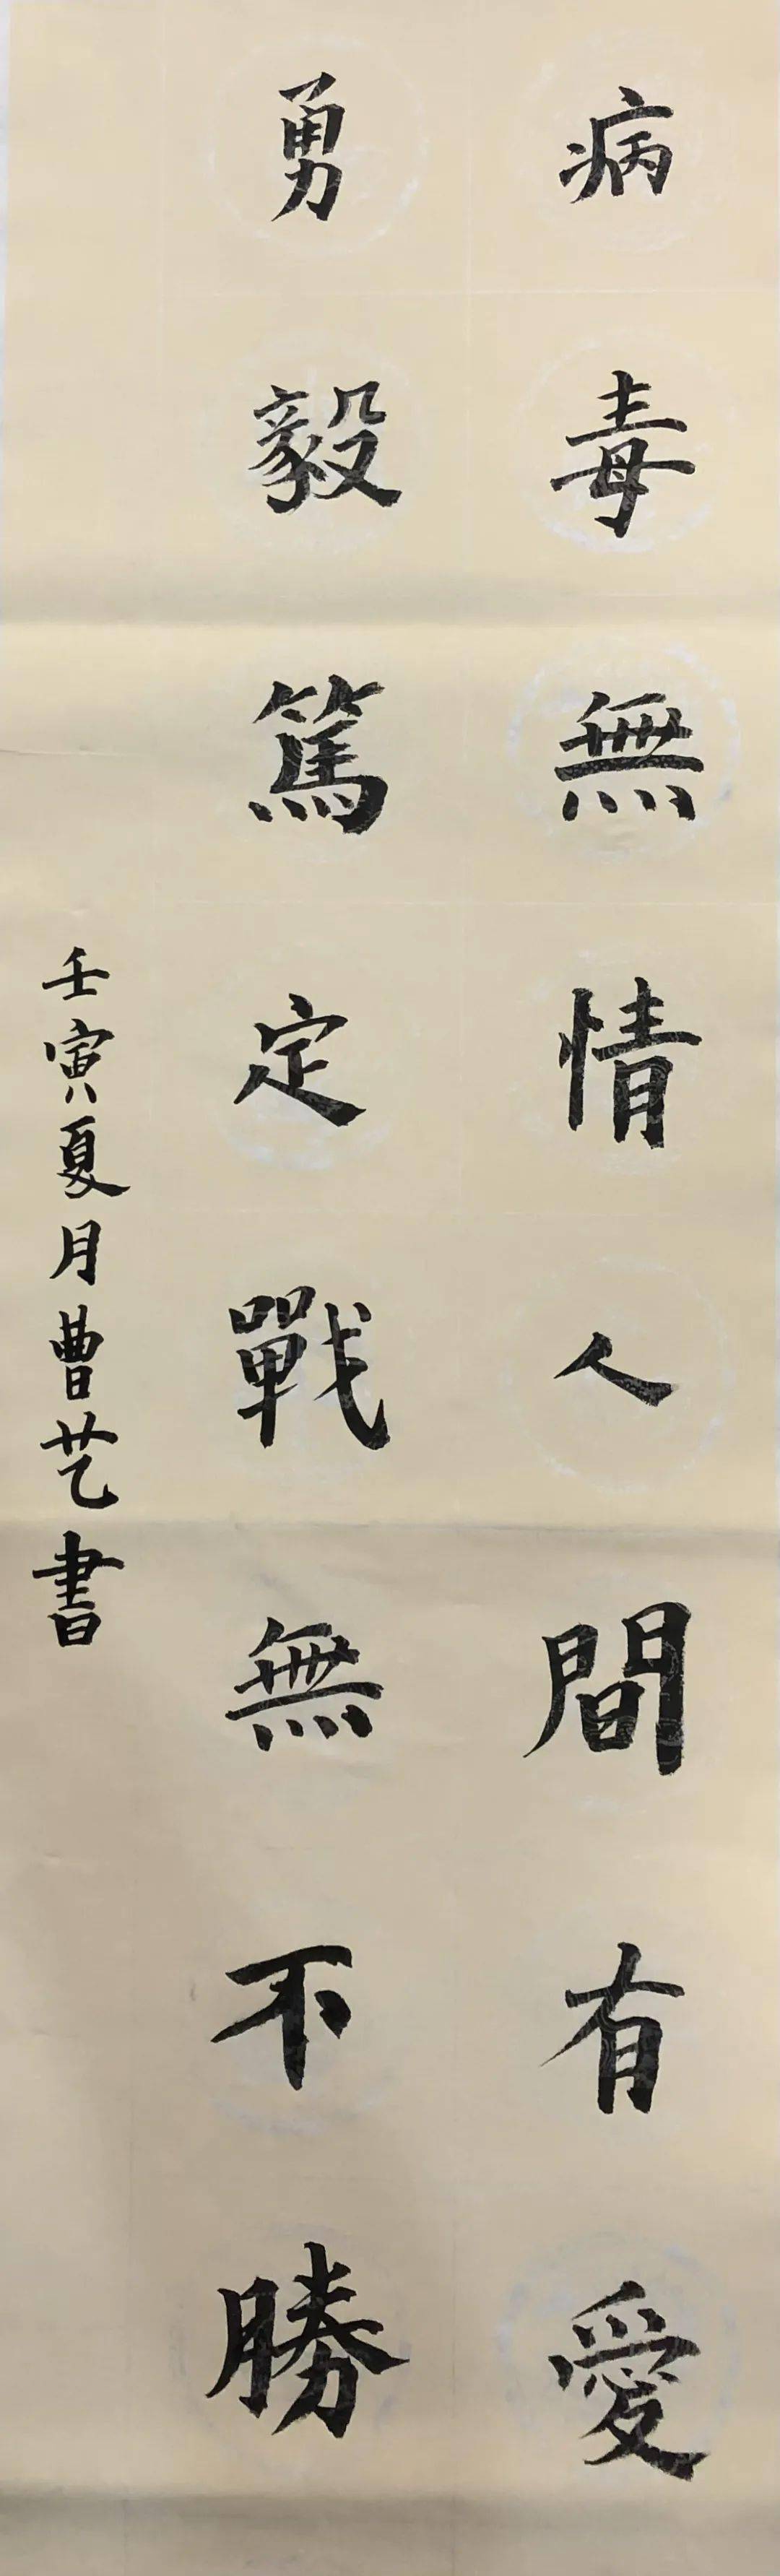 病毒無情人間有愛
勇毅篤定戰無不勝
壬寅夏月曹艺書